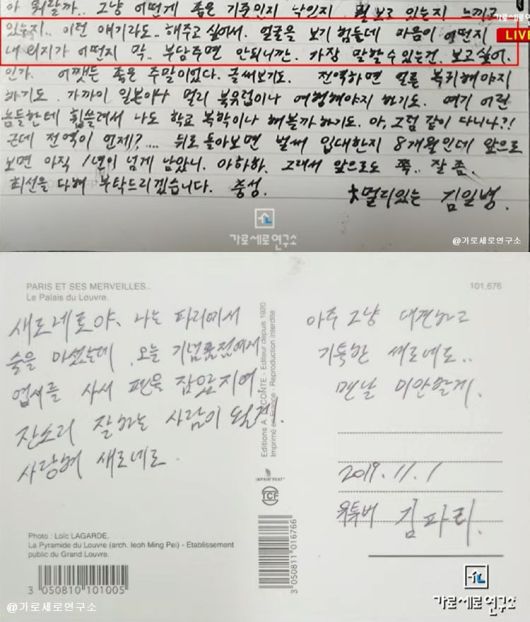 아 뭐랄까.. 그냥 어떻게 좋은 기준인지 낙인지 보고 있는지 느끼고
있는지.. 이런 얘기라도.. 해주고 싶어서. 얼굴을 보기 힘든데 마음이 어떤지
LIVE
내 의지가 어떤지 막.. 부담주면 안되니깐. 가장 말할수 있는건. 보고싶어.
인가. 어쨌든 좋은 주말이었다. 글써보기도. 전역하면 얼른 복귀해야지
하기도. 가까이 일본이나 멀리 북유럽이나 여행해야지 하기도. 여기 어린
놈들한테 휩쓸려서 나도 학교 복학이나 해볼까 하기도. 아, 그럼 같이 다니나?!
근데 전역이 언제?.... 뒤로 돌아보면 벌써 입대한지 8개월인데 앞으로
보면 아직 1년이 넘게 남았니. 아하하. 그래서 앞으로도 쭉.. 잘 좀.
최선을 다해 부탁드리겠습니다. 충성.
멀리있는 김일병.
가로세로연구소
@가로세로연구소
PARIS ET SES MERVEILLES..
Le Palais du Louvre.
101.676
새로네로야. 나는 파리에서
술을 마셨는데 오늘 기념품점에서
엽서를 사서 펜을 잡았지에.
잔소리 잘하는 사람이 될게.
사랑해 새로네로.
Editions A. LECONTE - Editeur depuis 1920
Imprimé en - Reproduction interdite
아주 그냥 대견하고
기특한 새로네로..
맨날 미안할게.
2019.11.1
유튜버 김파리.
Photo : Loïc LAGARDE.
La Pyramide du Louvre (arch. Ieoh Ming Pei) - Etablissement
public du Grand Louvre.
3 050810 101005
3 050811 016766
@가로세로연구소
가로세로연구소